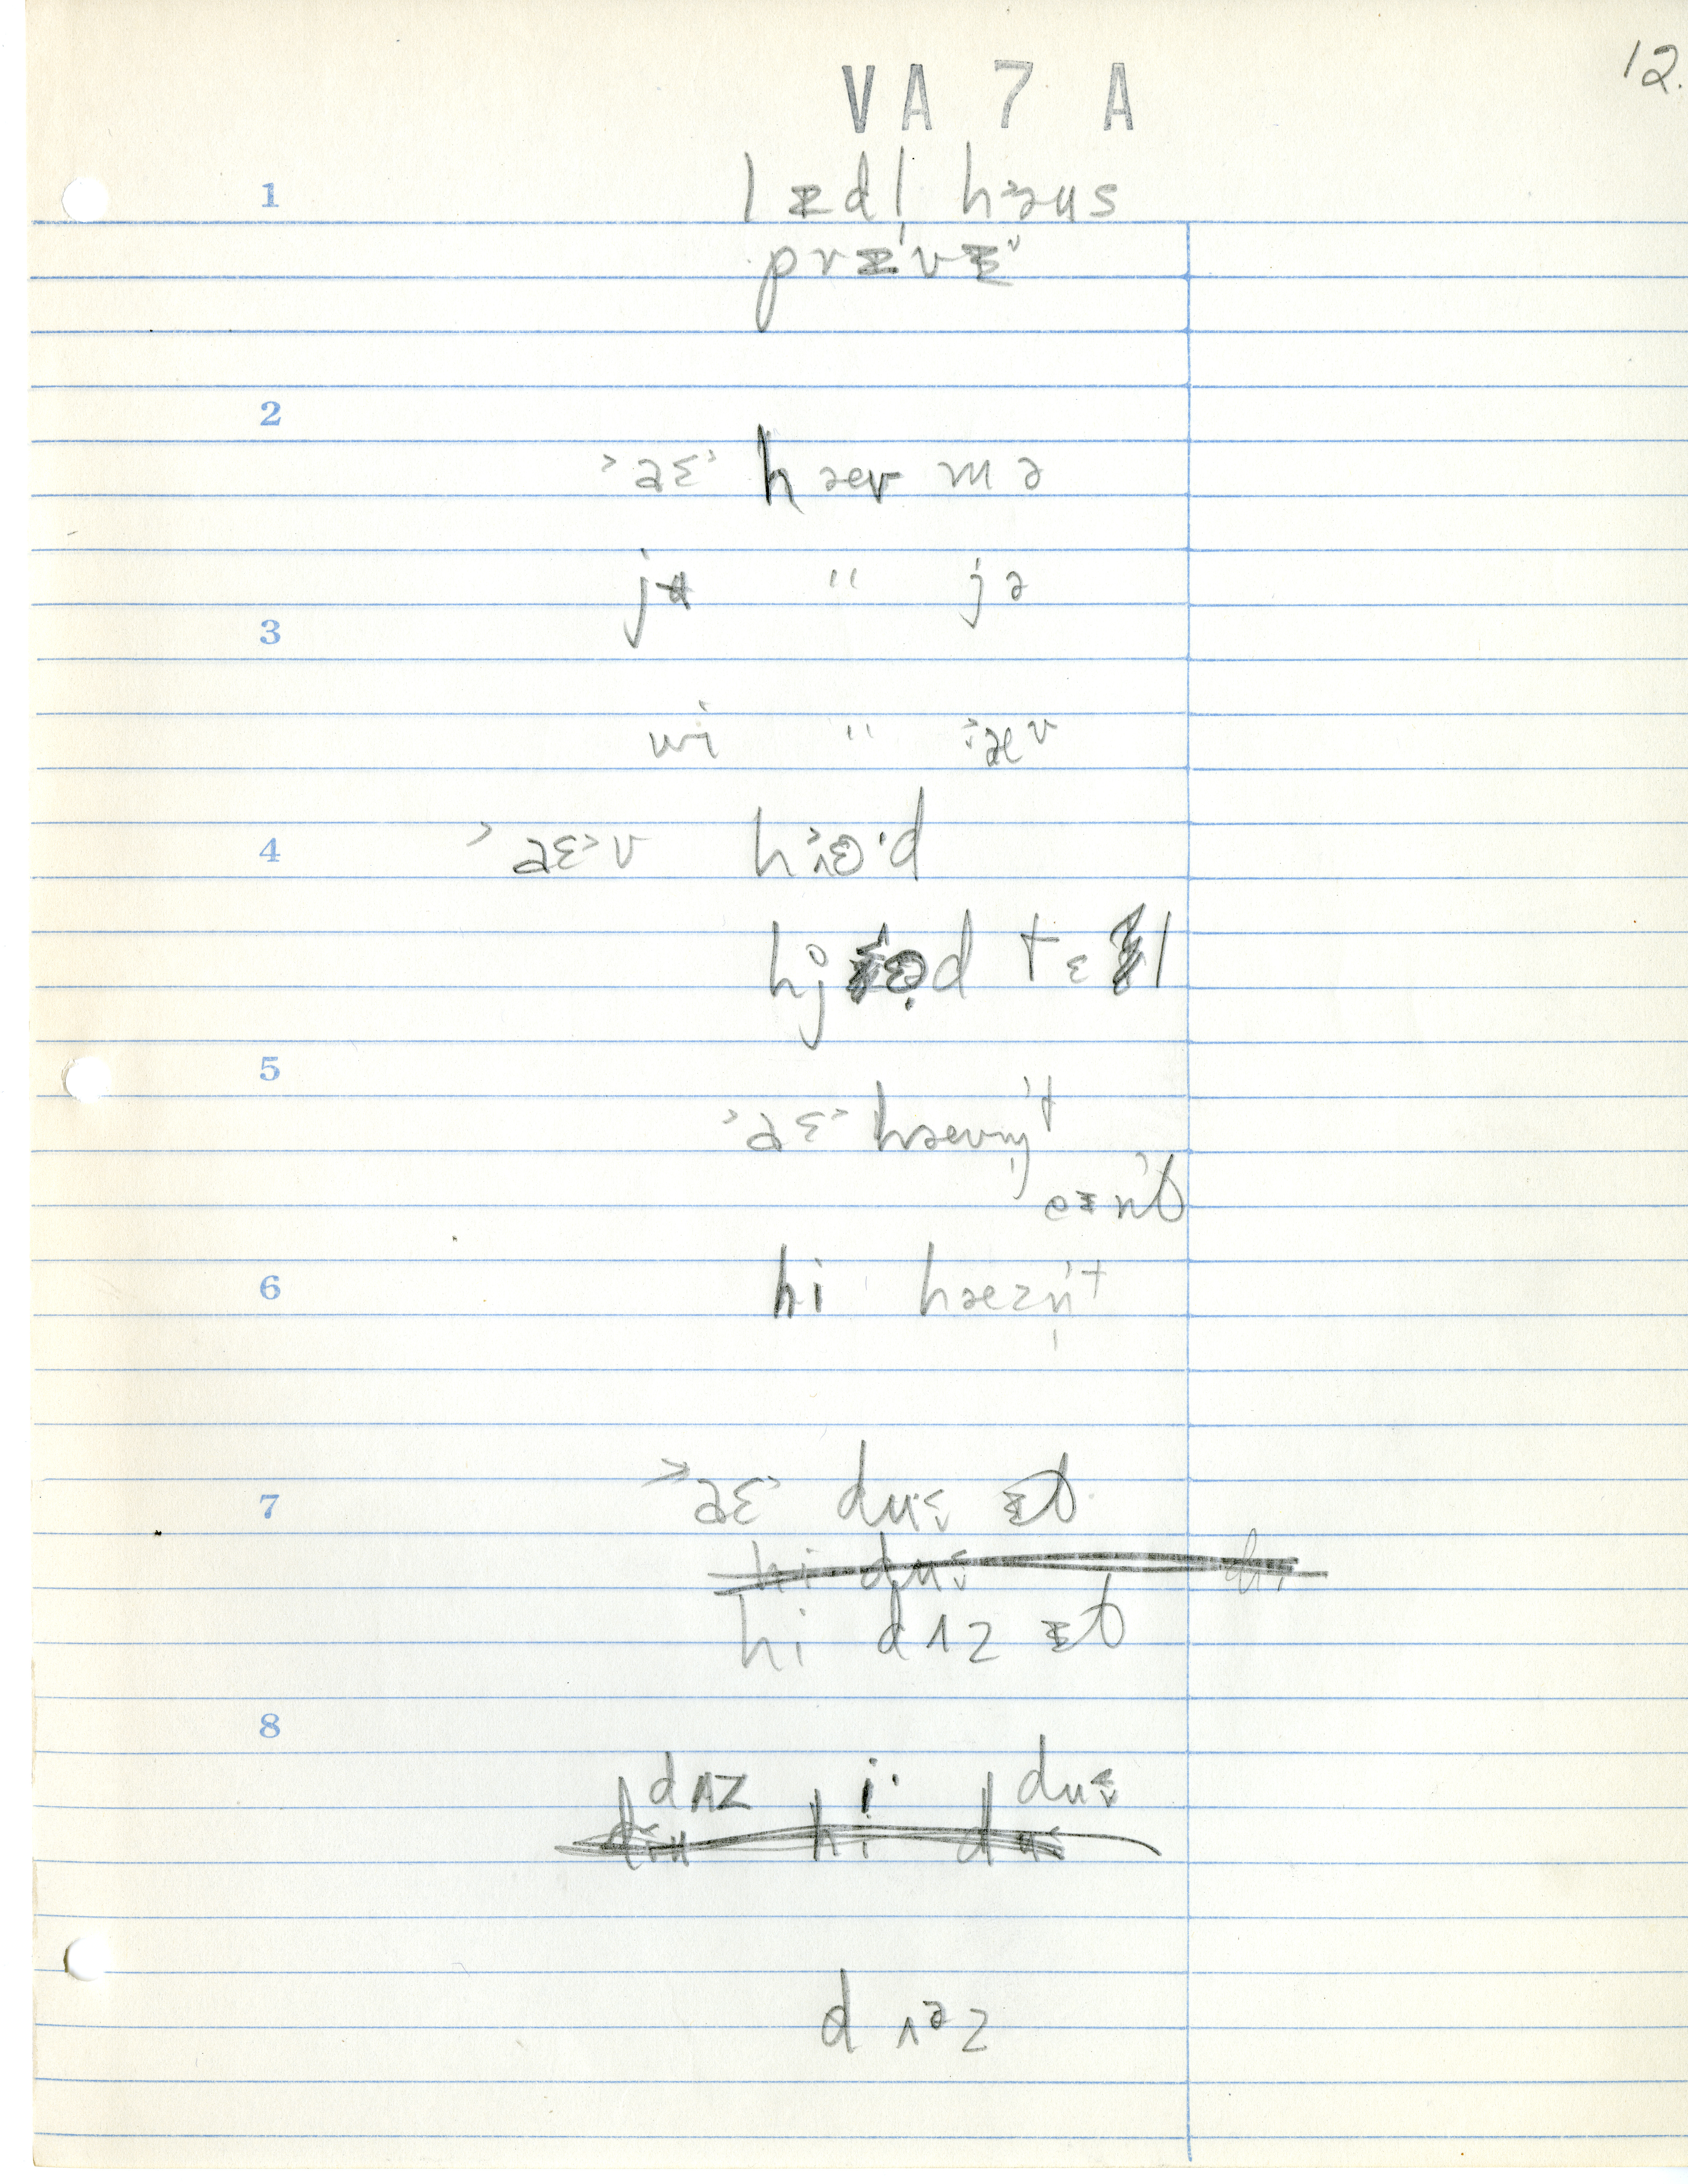 12.
VA 7 A
1 lɪdl həus
prɪvɪ
2
˃aɛ˃ hæv mə
jʉ " jə
3
wi " æv
4 ˃aɛ˃v hɪɵ·d
hj̊ɵd tɛl
5
˃aɛ˃ hævn̩'t
eɪn't
6 hi hæzn̩'t
7 ˃aɛ˃ duɪ ɪt
hi duɪ du
hi dʌz ɪt
8
dʌz i· duɪ
dɪu hi du
dʌəz